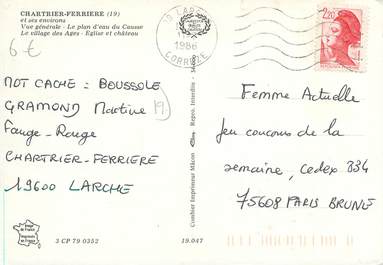 CHARTRIER-FERRIERE (19)
et ses environs
Vue générale - Le plan d'eau du Causse
Le village des Ages - Eglise et château
6 €
MOT CACHE : BOUSSOLE
GRAMOND Martine
19
Fauge-Rouge
CHARTRIER-FERRIERE
19600 LARCHE
3 CP 79 0352
19.047
Combier Imprimeur Mâcon
Repro. Interdite
19 LARCHE
1986
CORREZE
2,20
Femme Actuelle
Jeu concours de la
semaine, cedex 334
75608 PARIS BRUNE